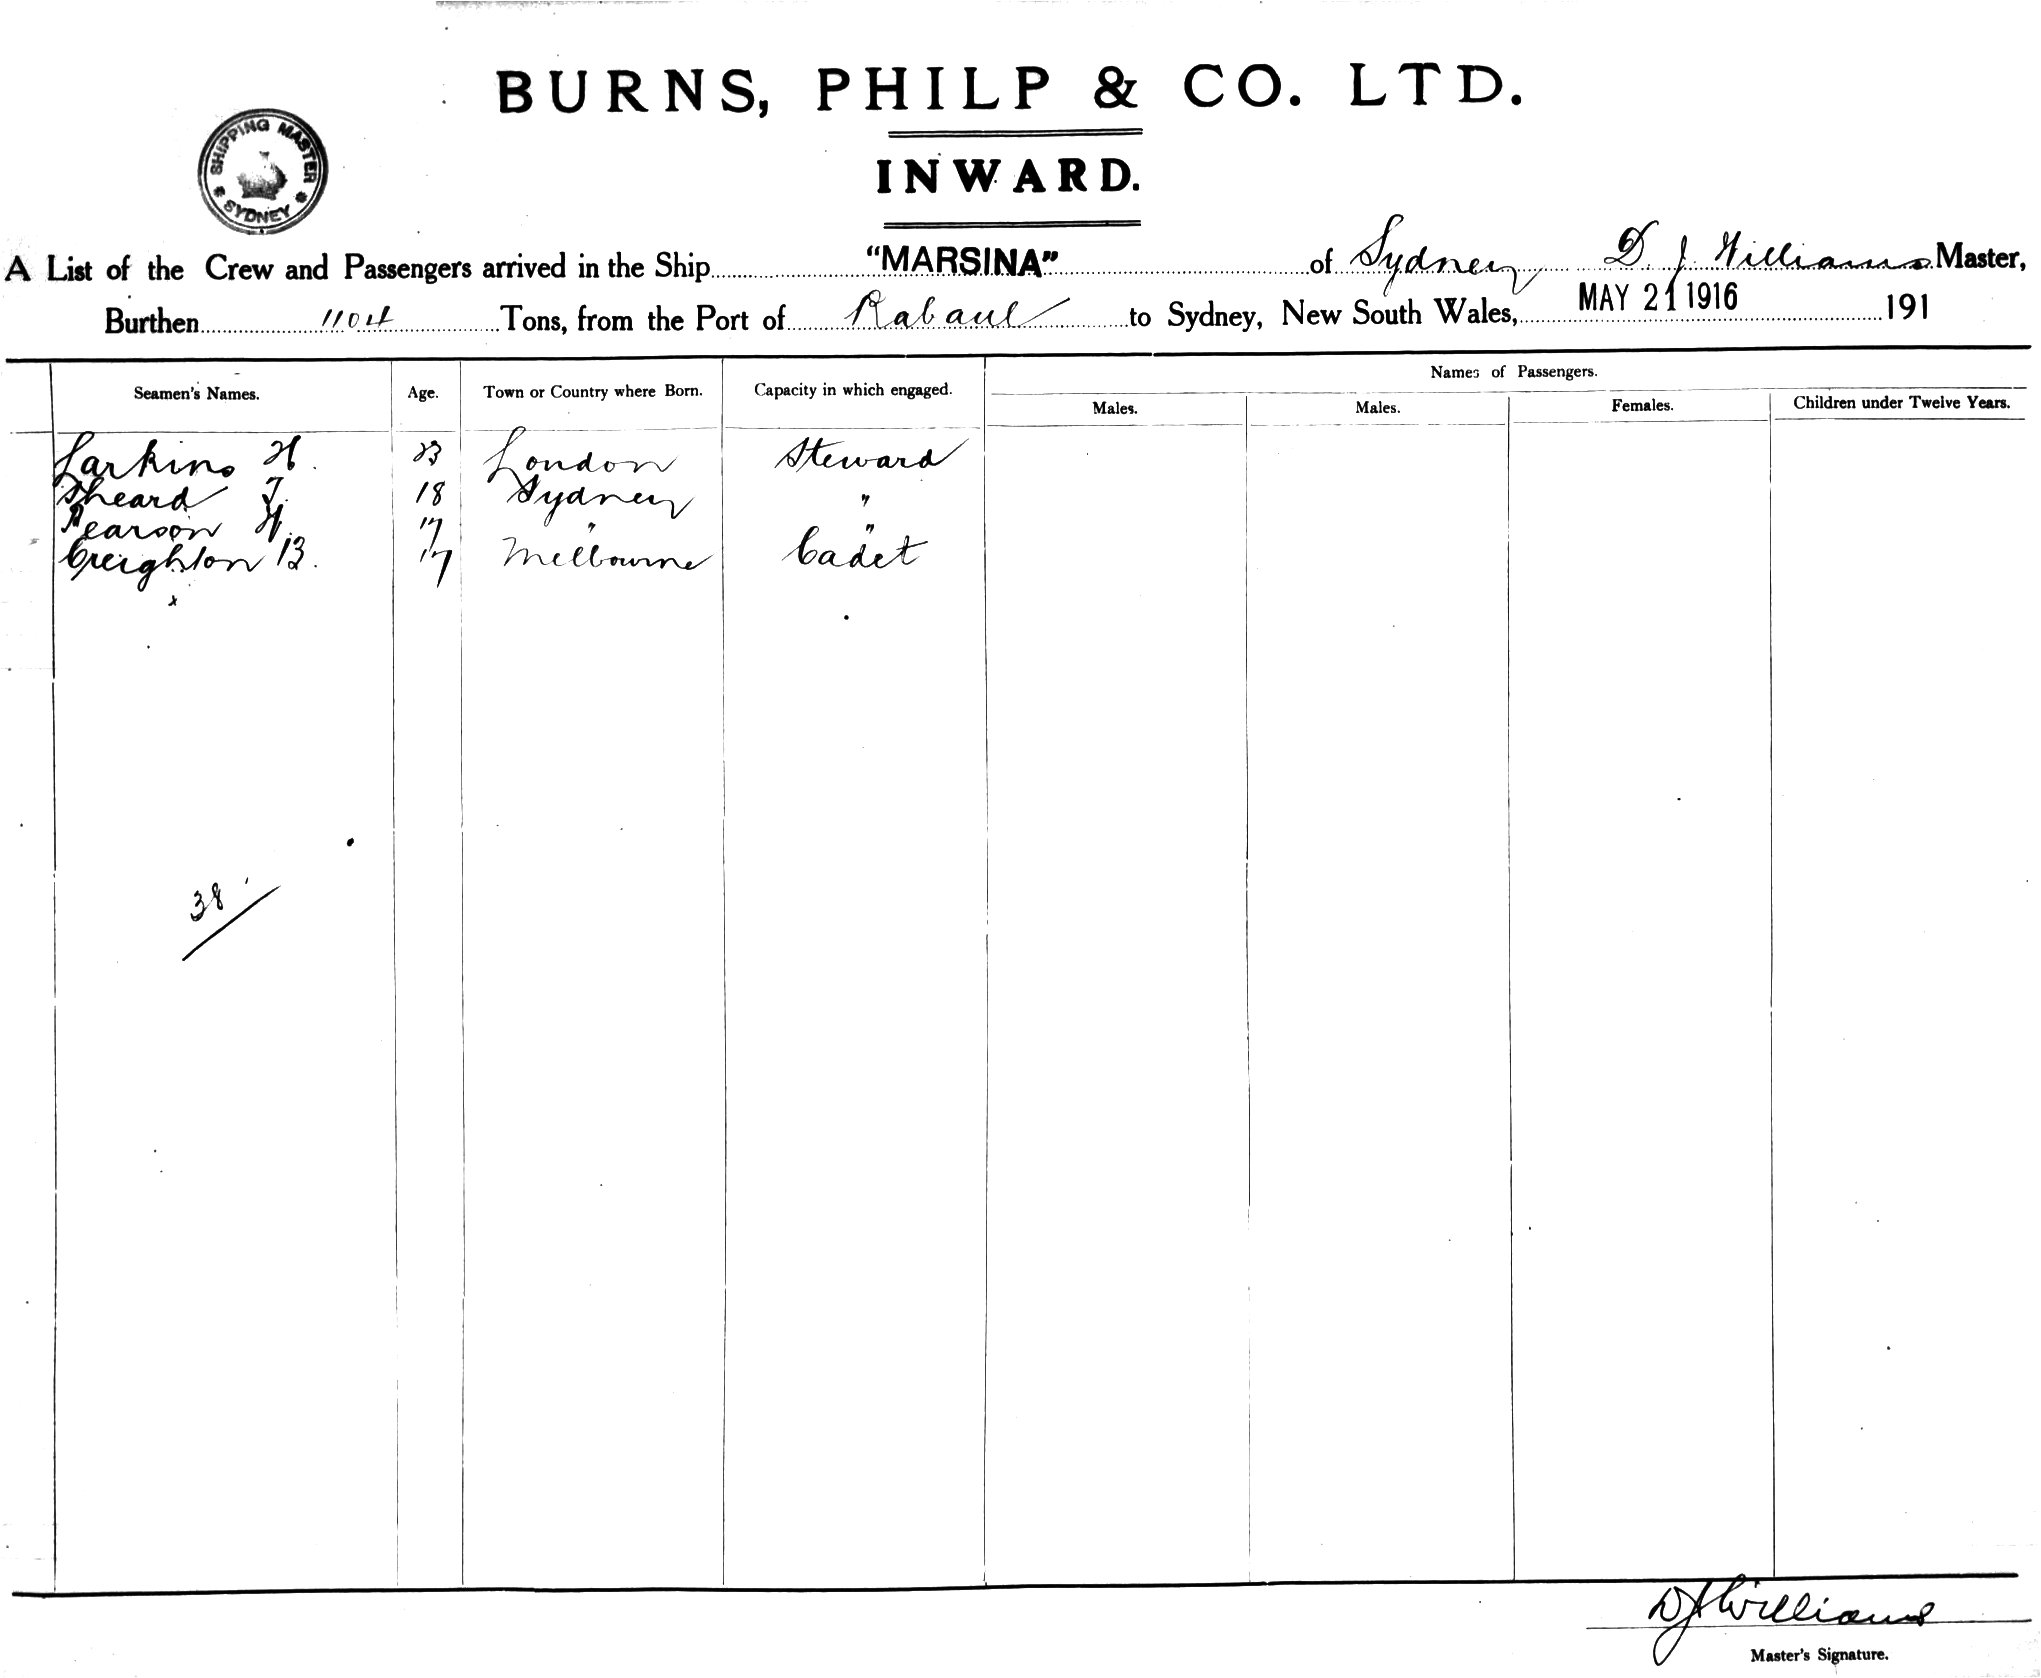 BURNS, PHILP & CO. LTD.
INWARD.
SHIPPING MASTER
SYDNEY
A List of the Crew and Passengers arrived in the Ship "MARSINA" of Sydney D. J Williams Master,
Burthen 1104 Tons, from the Port of Rabaul to Sydney, New South Wales, MAY 21 1916 191
Names of Passengers.
Seamen's Names. Age. Town or Country where Born. Capacity in which engaged. Males. Males. Females. Children under Twelve Years.
Larkins H. 23 London Steward
Sheard F. 18 Sydney "
Pearson H. 17 " "
Creighton B. 17 Melbourne Cadet
x
38
D J Williams
Master's Signature.